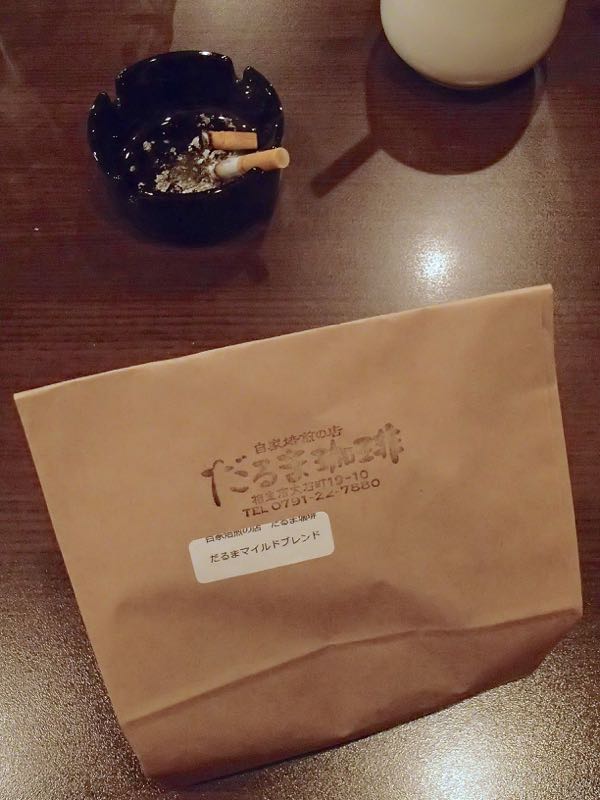 自家焙煎の店
だるま珈琲
相生市大石町19-10
TEL 0791-22-7880
自家焙煎の店 だるま珈琲
だるまマイルドブレンド